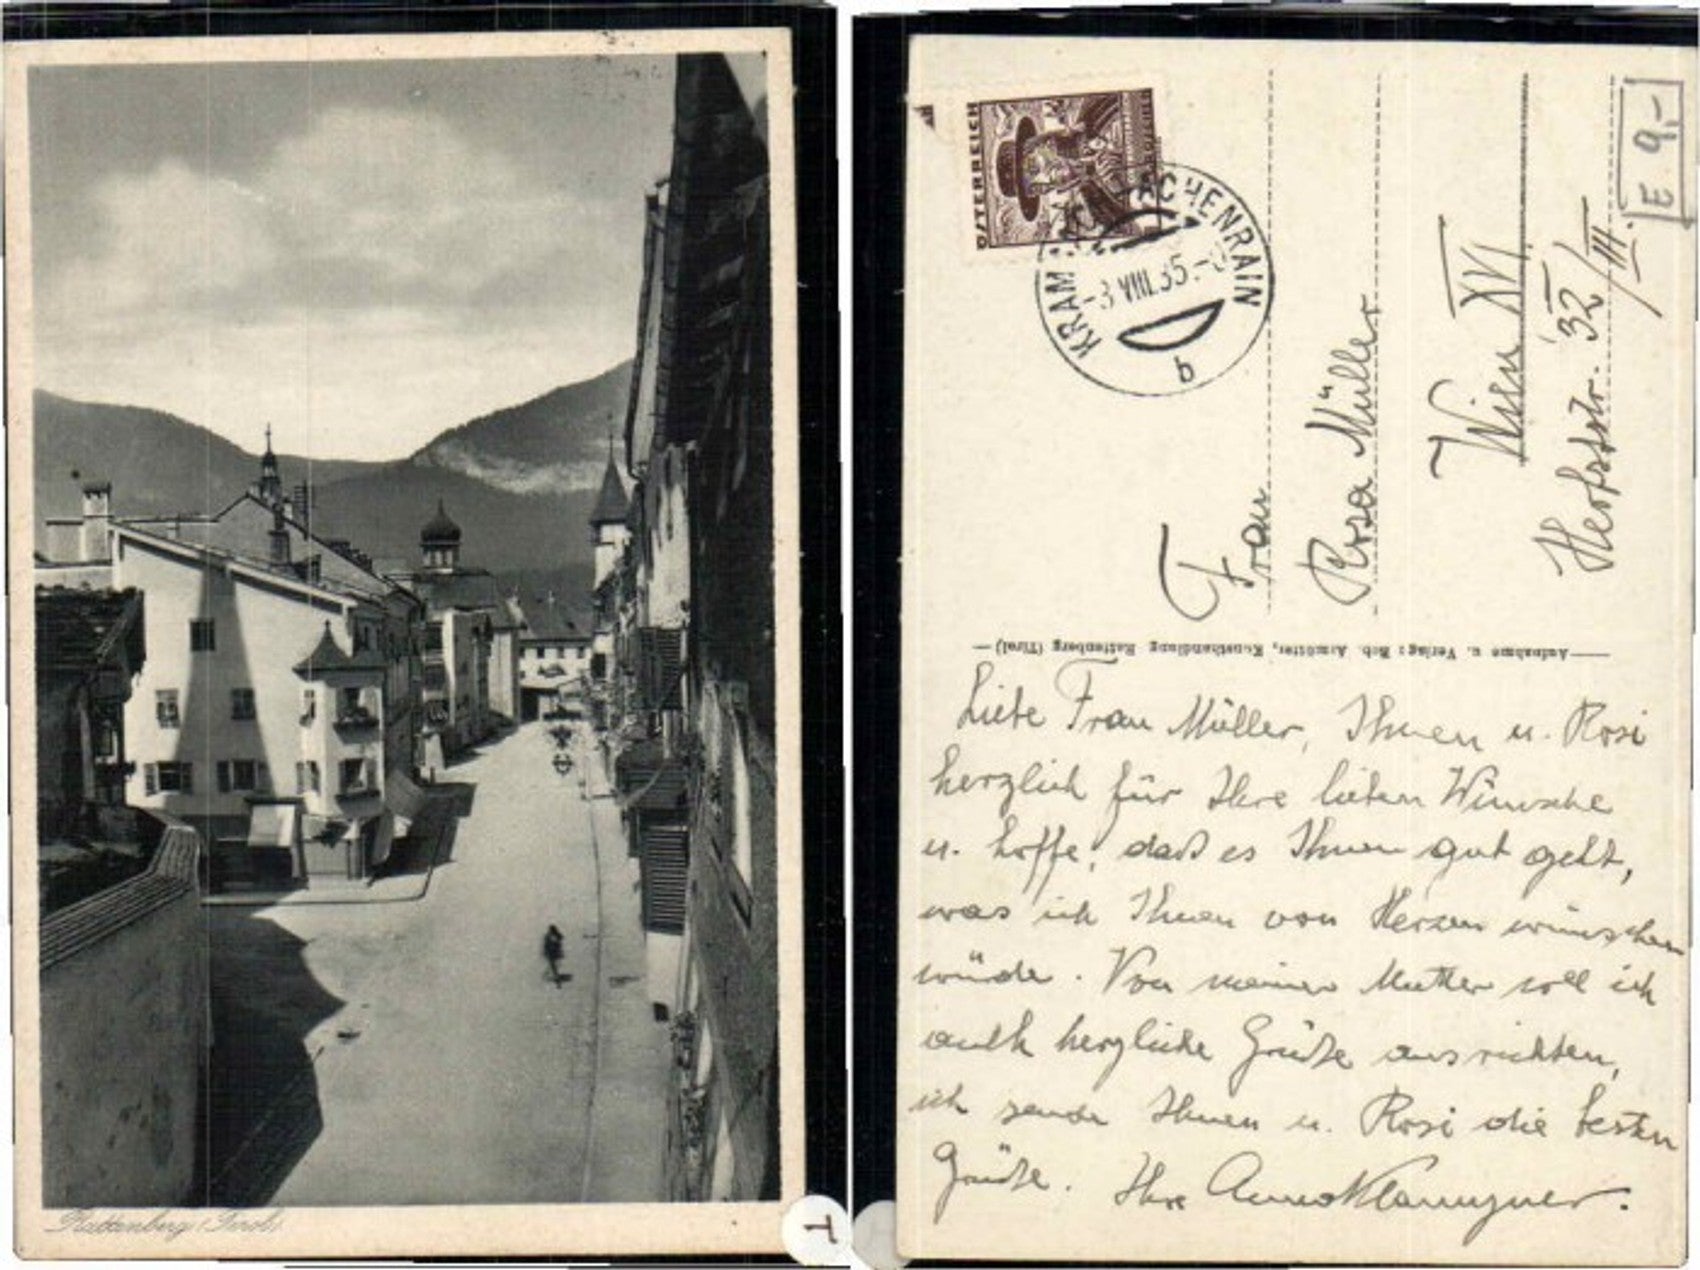 Rattenberg (Tirol)
T
ÖSTERREICH
KRAMSACH ACHENRAIN
-3.VIII.35.
b
E 9,-
Frau
Rosa Müller
Wien XVI
Herbststr. 32/III.
Aufnahme u. Verlag: Rob. Armütter, Kunsthandlung Rattenberg (Tirol)
Liebe Frau Müller, Ihnen u. Rosi
herzlich für Ihre lieben Wünsche
u. hoffe, daß es Ihnen gut geht,
was ich Ihnen von Herzen wünschen
würde. Von meiner Mutter soll ich
auch herzliche Grüße ausrichten,
ich sende Ihnen u. Rosi die besten
Grüße. Ihre Anna